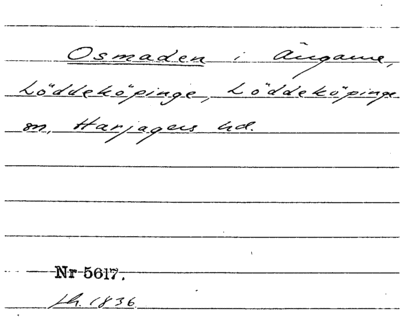 Osmaden i Ängarne,
Löddeköpinge, Löddeköpinge
sn, Harjagers hd.
Nr 5617.
Lh. 1836